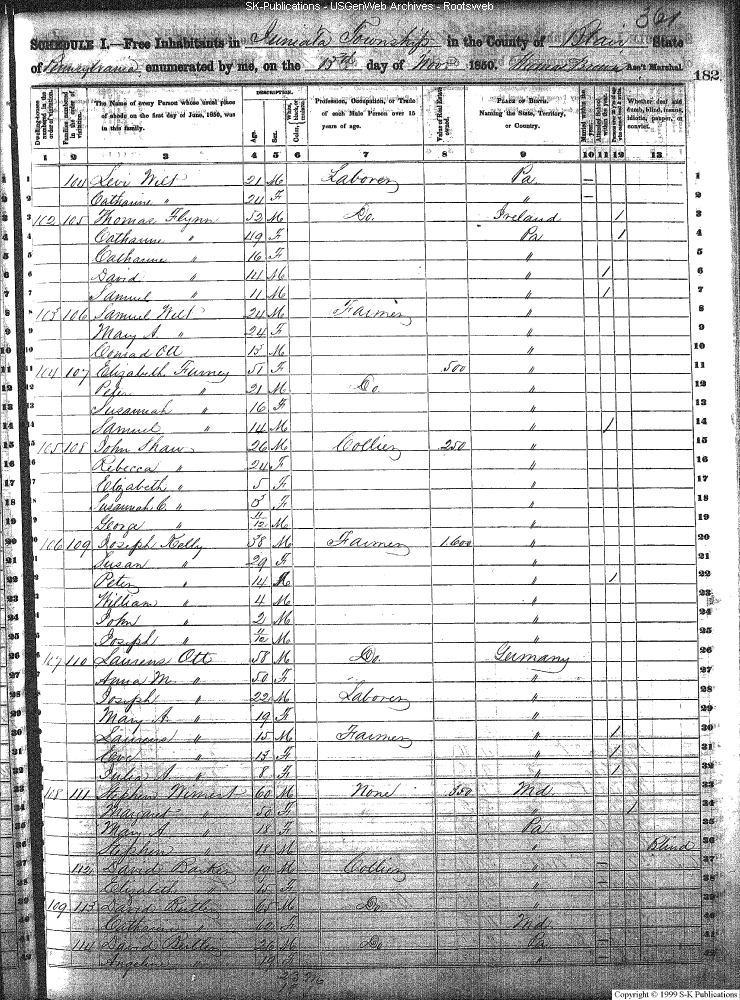 SK-Publications - USGenWeb Archives - Rootsweb
361
SCHEDULE I.—Free Inhabitants in Juniata Township in the County of Blair State
of Pennsylvania enumerated by me, on the 13th day of Nov 1850. Thomas Ass't Marshal.
182
Dwelling-houses numbered in the order of visitation.
Families numbered in the order of visitation.
The Name of every Person whose usual place of abode on the first day of June, 1850, was in this family.
DESCRIPTION.
Age.
Sex.
Color, White, black, or mulatto.
Profession, Occupation, or Trade of each Male Person over 15 years of age.
Value of Real Estate owned.
PLACE OF BIRTH. Naming the State, Territory, or Country.
Married within the year.
Attended School within the year.
Whether deaf and dumb, blind, insane, idiotic, pauper, or convict.
1 2 3 4 5 6 7 8 9 10 11 12 13
1 104 Levi Wilt 21 M Laborer Pa – 1
2 Catharine " 24 F " – 2
3 102 105 Thomas Flynn 52 M Do. Ireland / 3
4 Catharine " 49 F Pa / 4
5 Catharine " 16 F " 5
6 David " 14 M " / 6
7 Samuel " 11 M " / 7
8 103 106 Samuel Wilt 24 M Farmer " 8
9 Mary A " 24 F " 9
10 Conrad Ott 13 M " 10
11 104 107 Elizabeth Furney 51 F 500 " 11
12 Peter " 21 M Do. " 12
13 Susannah " 16 F " 13
14 Samuel " 14 M " / 14
15 105 108 John Shaw 26 M Collier 250 " 15
16 Rebecca " 24 F " 16
17 Elizabeth " 5 F " 17
18 Susannah C. " 3 F " 18
19 George " /12 M " 19
20 106 109 Joseph Kelly 38 M Farmer 1.600 " 20
21 Susan " 29 F " 21
22 Peter " 14 M " / 22
23 William " 4 M " 23
24 John " 2 M " 24
25 Joseph " /12 M " 25
26 107 110 Laurens Ott 58 M Do. Germany 26
27 Anna M. " 50 F " 27
28 Joseph " 22 M Laborer " 28
29 Mary A. " 19 F " 29
30 Laurens " 15 M Farmer " / 30
31 Eve " 13 F " / 31
32 Julia A " 8 F " / 32
33 108 111 Stephen 60 M None 350 Md. 33
34 Margaret " 50 F " / 34
35 Mary A " 18 F Pa 35
36 Stephen " 18 M " Blind 36
37 112 David Barker 19 M Collier " – 37
38 Elizabeth " 15 F " – 38
39 109 113 David 65 M Do " 39
40 Catharine " 60 F Md. 40
41 114 David 26 M Do Pa – 41
42 Angeline " 19 F " – 42
Copyright © 1999 S-K Publications